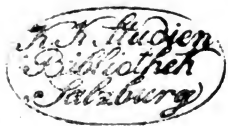 K.K. Studien
Bibliothek
Salzburg